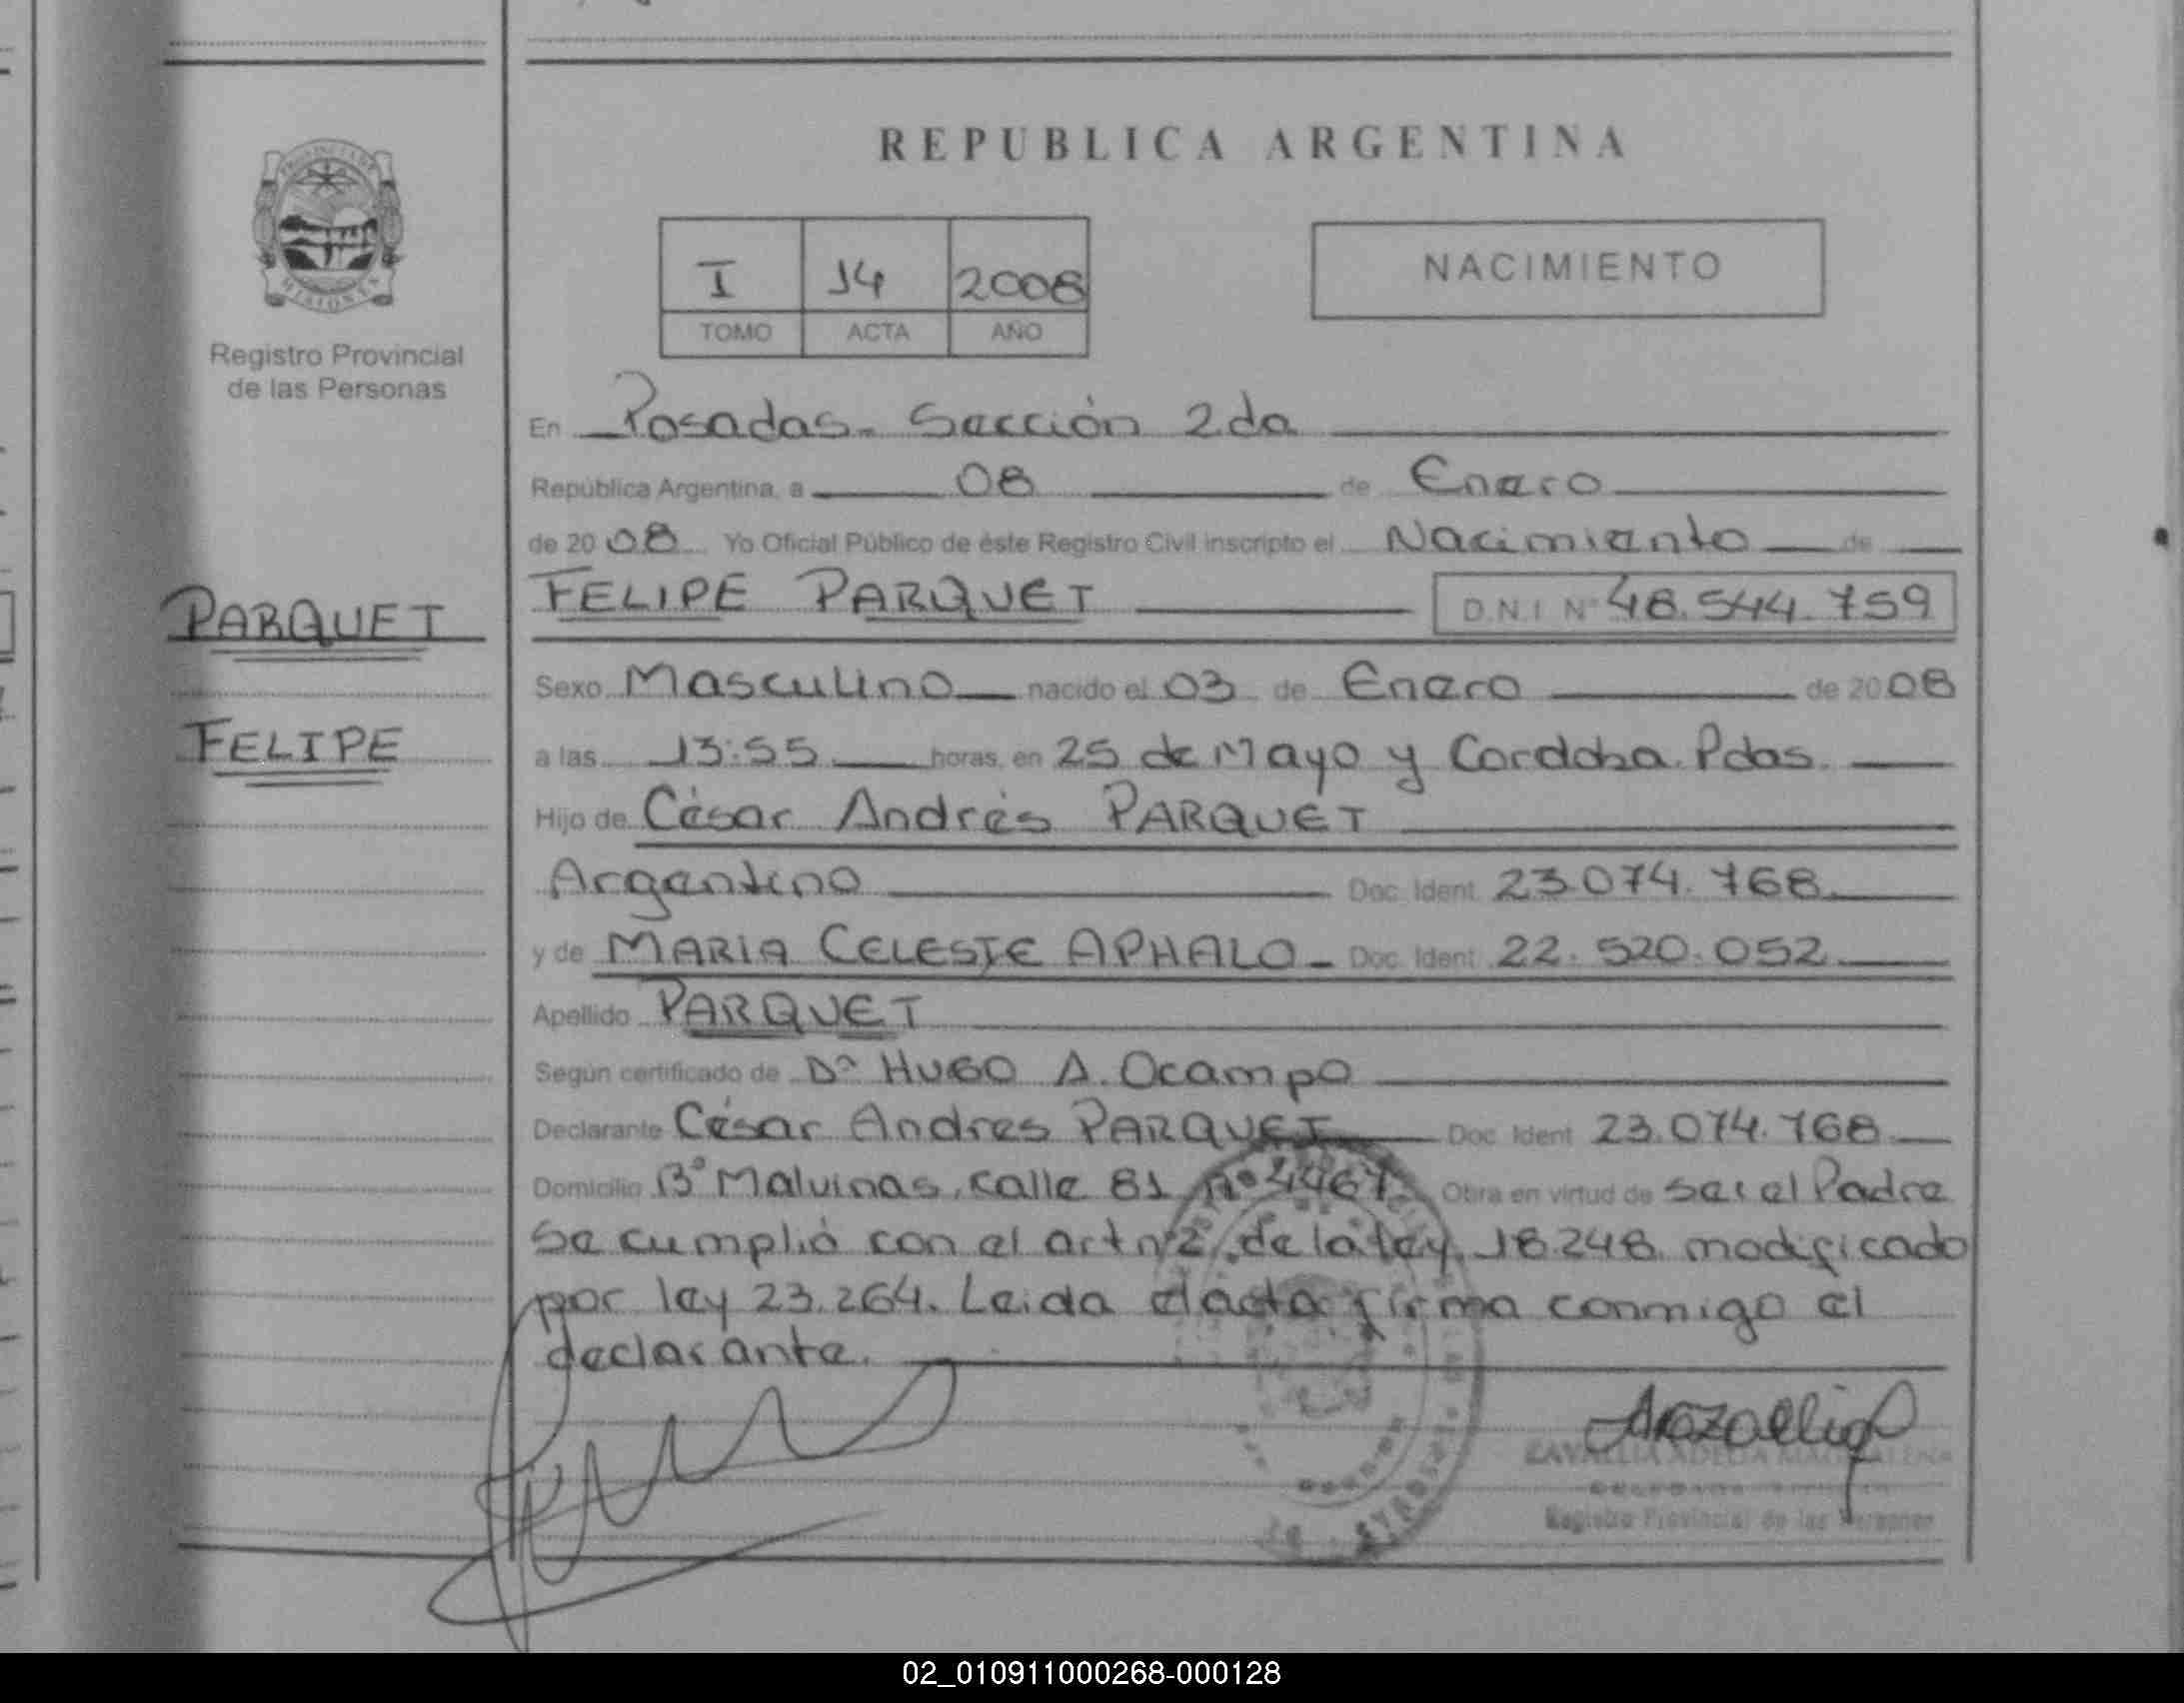 REPUBLICA ARGENTINA
I 14 2008
TOMO ACTA AÑO
NACIMIENTO
Registro Provincial
de las Personas
En Posadas. Sección 2da
República Argentina, a 08 de Enero
de 2008 Yo Oficial Público de éste Registro Civil inscripto el Nacimiento de
FELIPE PARQUET D.N.I Nº 48.544.759
PARQUET
FELIPE
Sexo Masculino nacido el 03 de Enero de 2008
a las 13:55 horas, en 25 de Mayo y Cordoba. Pdas.
Hijo de César Andrés PARQUET
Argentino Doc. Ident. 23.074.768
y de MARIA CELESTE APHALO Doc. Ident. 22.520.052
Apellido PARQUET
Según certificado de Dº HUGO A. Ocampo
Declarante César Andres PARQUET Doc. Ident. 23.074.768
Domicilio Bº Malvinas, calle 81 nº 4467 Obra en virtud de ser el Padre
Se cumplió con el art nº2 de la ley 18.248 modificado
por ley 23.264. Leida el acta firma conmigo el
declarante.
Registro Provincial de las Personas
02_010911000268-000128